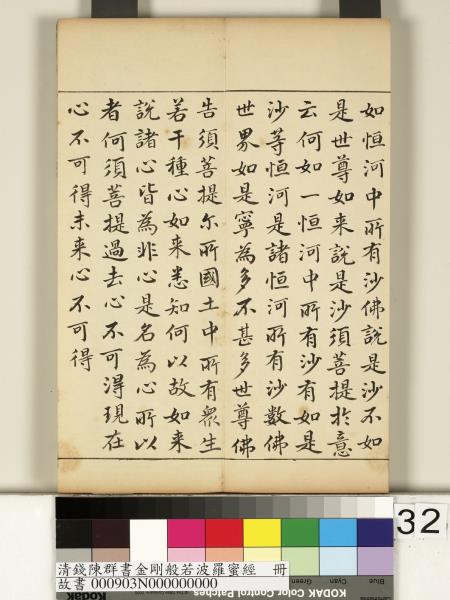 如恒河中所有沙佛說是沙不如
是世尊如来說是沙須菩提於意
云何如一恒河中所有沙有如是
沙等恒河是諸恒河所有沙數佛
世界如是寧為多不甚多世尊佛
告須菩提尔所國土中所有衆生
若干種心如来悉知何以故如来
說諸心皆為非心是名為心所以
者何須菩提過去心不可得現在
心不可得未来心不可得
32
Blue Cyan Green
KODAK Color Control Patches
Kodak
清錢陳群書金剛般若波羅蜜經 冊
故書 000903N000000000